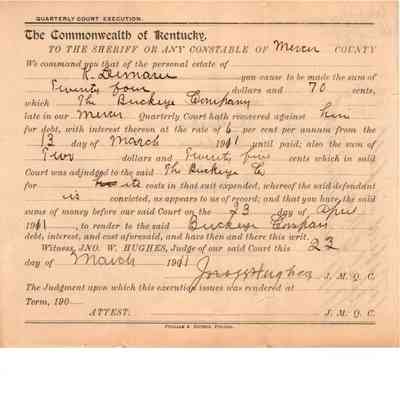 QUARTERLY COURT EXECUTION.
The Commonwealth of Kentucky,
TO THE SHERIFF OR ANY CONSTABLE OF Mercer COUNTY
We command you that of the personal estate of
K. Demaree you cause to be made the sum of
Twenty four dollars and 70 cents,
which The Buckeye Company
late in our Mercer Quarterly Court hath recovered against him
for debt, with interest thereon at the rate of 6 per cent per annum from the
13 day of March 1911 until paid; also the sum of
Two dollars and Twenty five cents which in said
Court was adjudged to the said The Buckeye Co
for its costs in that suit expended, whereof the said defendant
is convicted, as appears to us of record; and that you have the said
sums of money before our said Court on the 23 day of April
1911, to render to the said Buckeye Company
debt, interest, and cost aforesaid, and have then and there this writ.
Witness, JNO. W. HUGHES, Judge of our said Court this 23
day of March 1911
Jno W Hughes J. M. Q. C.
The Judgment upon which this execution issues was rendered at
Term, 190
ATTEST. J. M. Q. C.